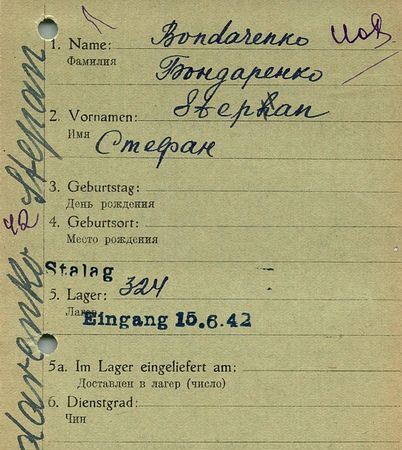 1. Name: Bondarenko
Фамилия Бондаренко
2. Vornamen: Stephan
Имя Стефан
3. Geburtstag:
День рождения
4. Geburtsort:
Место рождения
Stalag
5. Lager: 324
Лагер Eingang 15.6.42
5a. Im Lager eingeliefert am:
Доставлен в лагерь (число)
6. Dienstgrad:
Чин
darenko Stepan